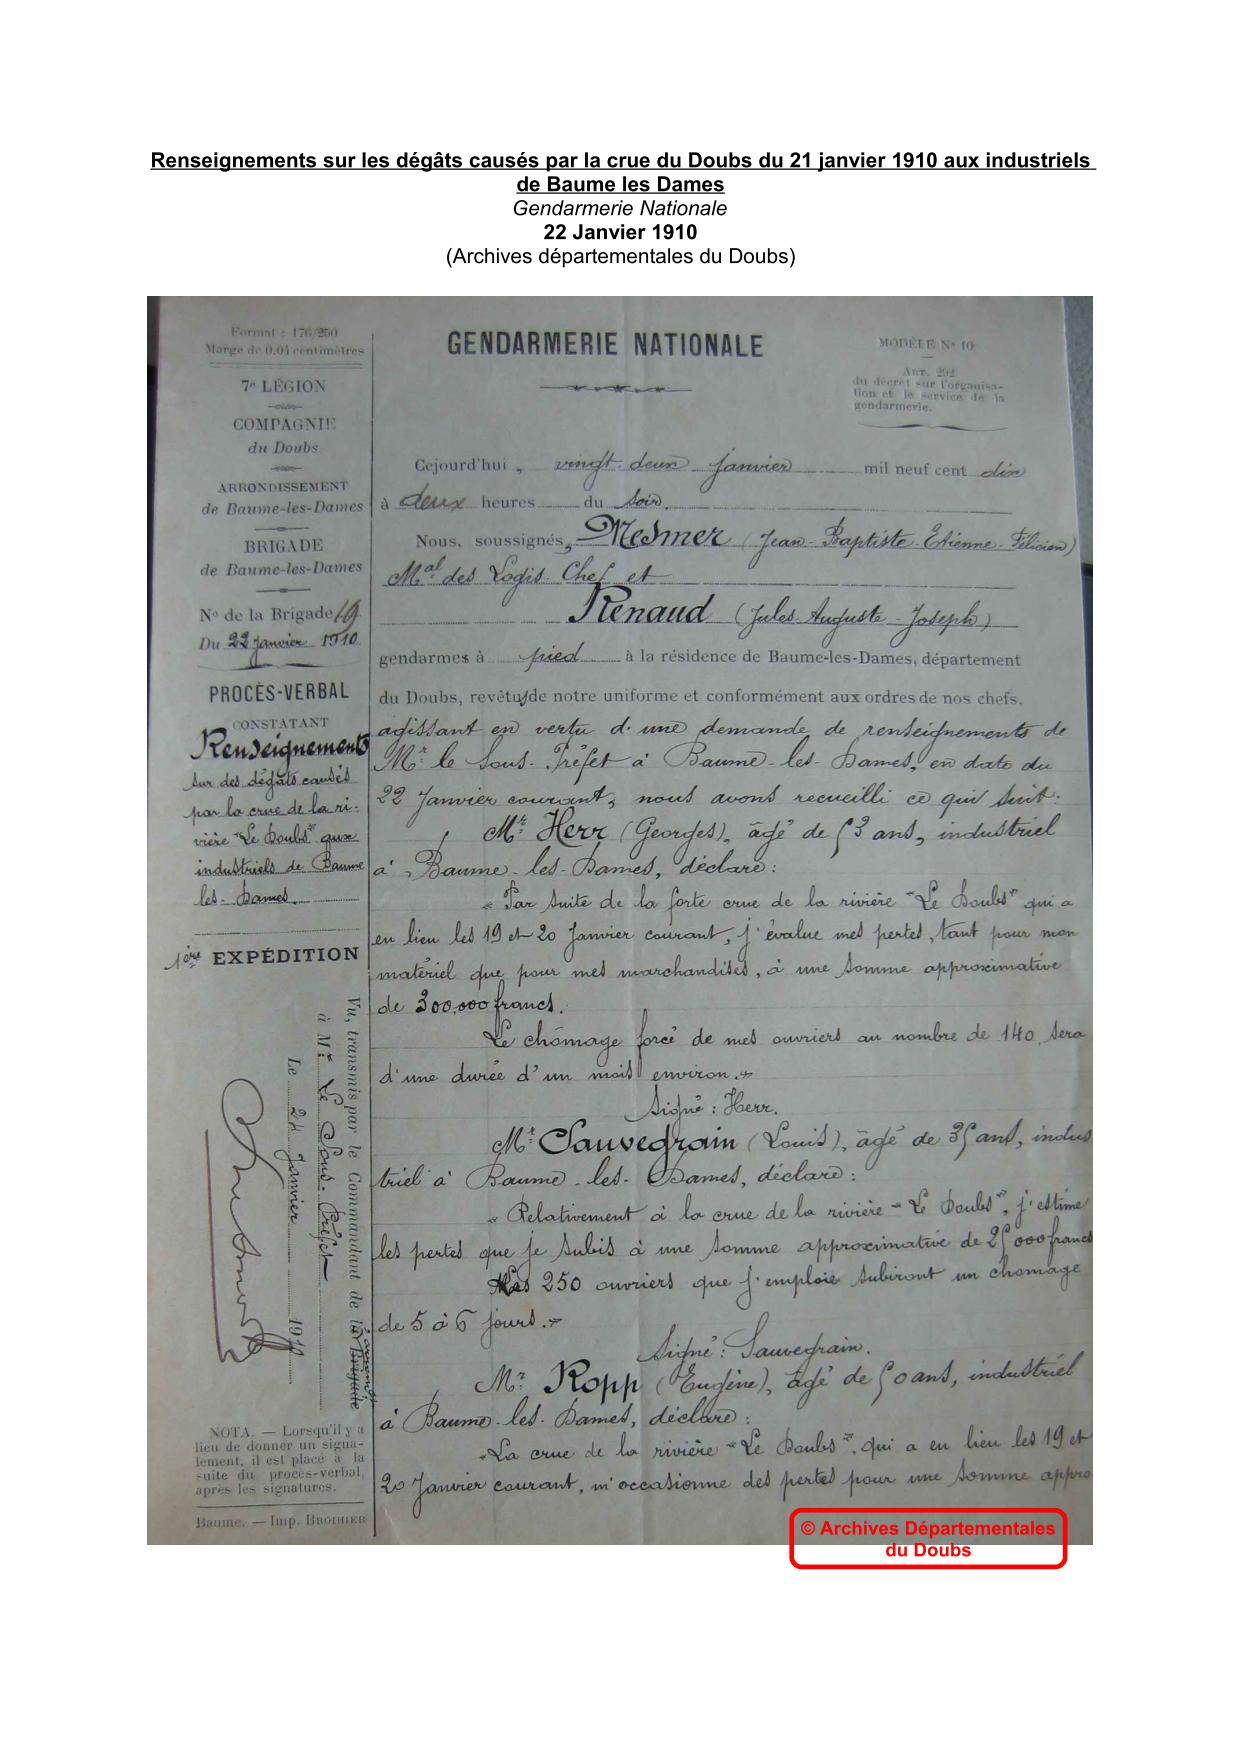 Renseignements sur les dégâts causés par la crue du Doubs du 21 janvier 1910 aux industriels
de Baume les Dames
Gendarmerie Nationale
22 Janvier 1910
(Archives départementales du Doubs)
Format : 176/250
Marge de 0.04 centimètres
7e LÉGION
COMPAGNIE
du Doubs
ARRONDISSEMENT
de Baume-les-Dames
BRIGADE
de Baume-les-Dames
No de la Brigade 19
Du 22 Janvier 1910
PROCÈS-VERBAL
CONSTATANT
Renseignements
sur des dégâts causés
par la crue de la ri-
vière "Le Doubs" aux
industriels de Baume
les-Dames.
1ère EXPÉDITION
Vu, transmis par le Commandant de la Brigade
à Mr Le Sous-Préfet
Le 24 Janvier 1910
NOTA. — Lorsqu'il y a
lieu de donner un signa-
lement, il est placé à la
suite du procès-verbal,
après les signatures.
Baume. — Imp. BROIHIER
GENDARMERIE NATIONALE
MODÈLE No 10
ART. 292
du décret sur l'organisa-
tion et le service de la
gendarmerie.
Cejourd'hui, vingt-deux janvier mil neuf cent dix
à deux heures du soir.
Nous, soussignés, Mesmer (Jean-Baptiste-Etienne-Félicien)
Mal des Logis-Chef et
Renaud (Jules-Auguste-Joseph)
gendarmes à pied à la résidence de Baume-les-Dames, département
du Doubs, revêtus de notre uniforme et conformément aux ordres de nos chefs,
agissant en vertu d'une demande de renseignements de
Mr le Sous-Préfet à Baume-les-Dames, en date du
22 Janvier courant, nous avons recueilli ce qui suit:
Mr Herr (Georges), âgé de 53 ans, industriel
à Baume-les-Dames, déclare:
"Par suite de la forte crue de la rivière "Le Doubs" qui a
en lieu les 19 et 20 Janvier courant, j'évalue mes pertes, tant pour mon
matériel que pour mes marchandises, à une somme approximative
de 300.000 francs.
Le chômage forcé de mes ouvriers au nombre de 140, sera
d'une durée d'un mois environ."
Signé: Herr.
Mr Sauvegrain (Louis), âgé de 35 ans, indus
triel à Baume-les-Dames, déclare:
"Relativement à la crue de la rivière "Le Doubs", j'estime
les pertes que je subis à une somme approximative de 25000 francs
Mes 250 ouvriers que j'emploie subiront un chomage
de 5 à 6 jours."
Signé: Sauvegrain.
Mr Ropp (Eugène), âgé de 50 ans, industriel
à Baume-les-Dames, déclare:
"La crue de la rivière "Le Doubs", qui a en lieu les 19 et
20 Janvier courant, m'occasionne des pertes pour une somme appro
© Archives Départementales
du Doubs